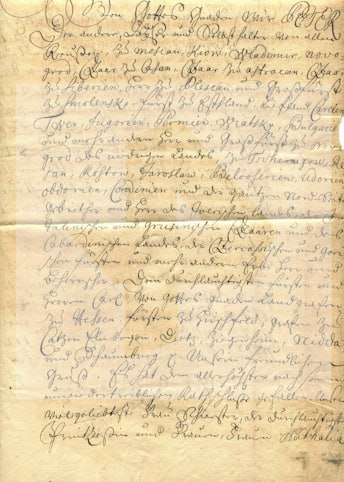 Von Gottes Gnaden Wir PETER
Der ander, Czaar und Selbsthalter von allen
Reussen, zu Moscau, Kiow, Wlademir, Novo-
grod, Czaar zu Casan, Czaar zu Astracan, Czaar
zu Siberien, Herr zu Plescau und Großfürst
zu Smolensky, Fürst zu Ehstland, Liefland, Carelen,
Twer, Jugorien, Permien, Wiatsky, Bulgarien
und mehr andern Herr und Großfürst zu Novo-
grod des niedrigen Landes, zu Tschernigow, Re-
san, Rostow, Jaroslaw, Belooserien, Udorien,
Obdorien, Condinien und der gantzen Nord-Seite
Gebiether und Herr des Iverischen Landes, der Car-
talinischen und Grusinischen Czaaren und des
Cabardinischen Landes, der Czerkassischen und Gori-
schen Fürsten und mehr andern Erb Herr und
Beherrscher. Dem Durchläuchtigsten Fürsten und
Herren Carl, Von Gottes Gnaden Landgrafen
zu Hessen, Fürsten zu Hirschfeld, Grafen zu
Catzen Elnbogen, Dietz, Ziegenhain, Nidda
und Schaumburg Unsern freundlichen
Gruß. Es hat dem allerhöchsten nach seinem
Rathschluße gefallen,
vielgeliebteste Frau Schwester, die Durchläuchtigste
und Frauen, Frauen Nathalia